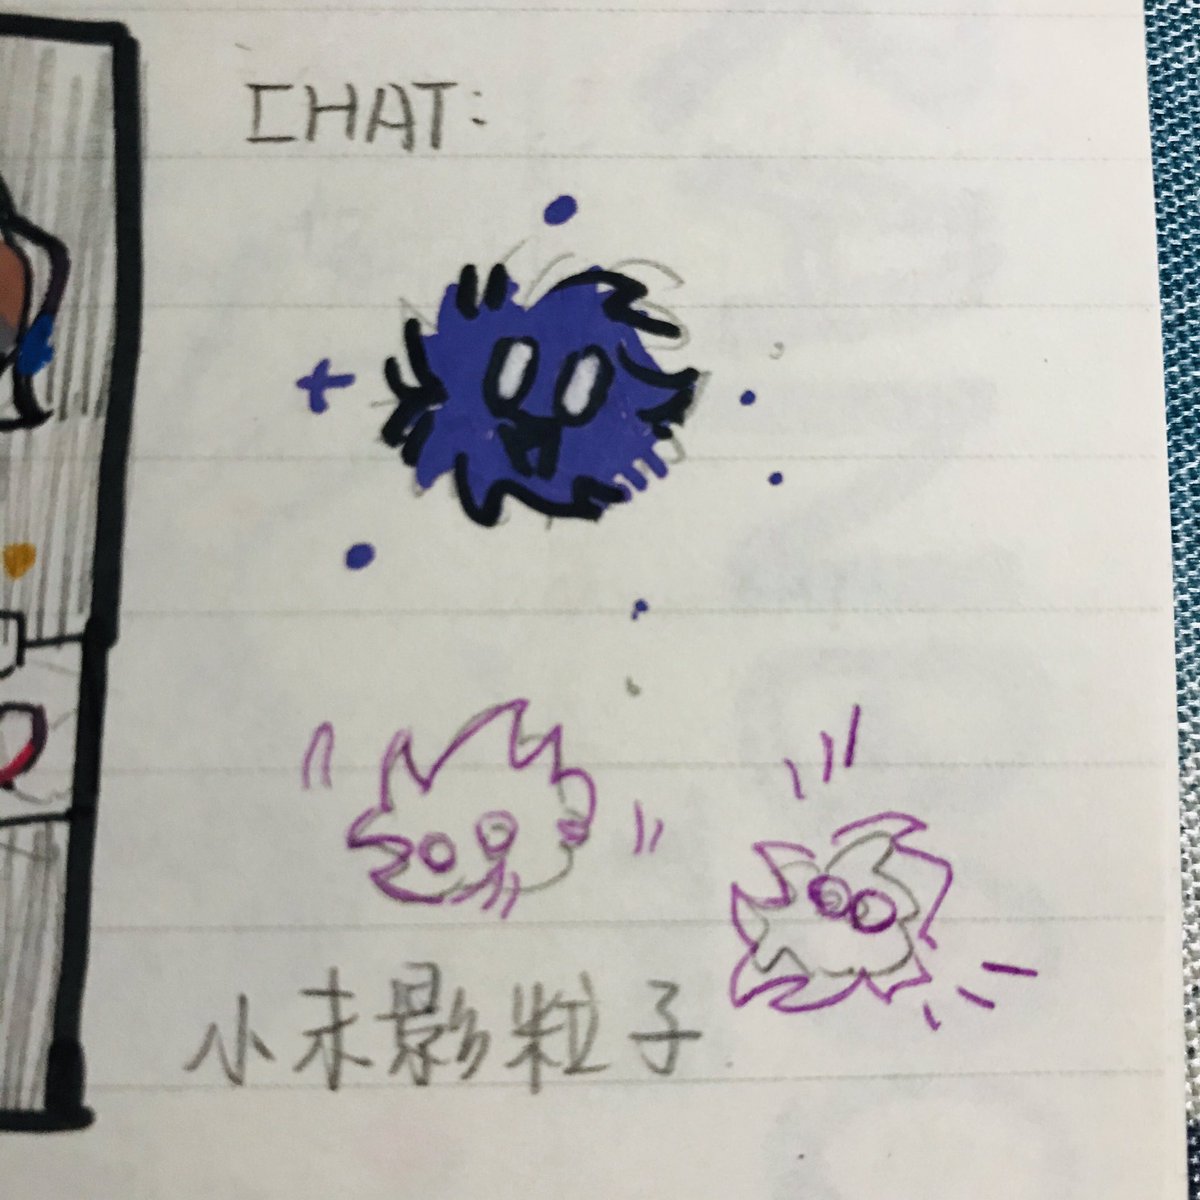 CHAT:
小末影粒子